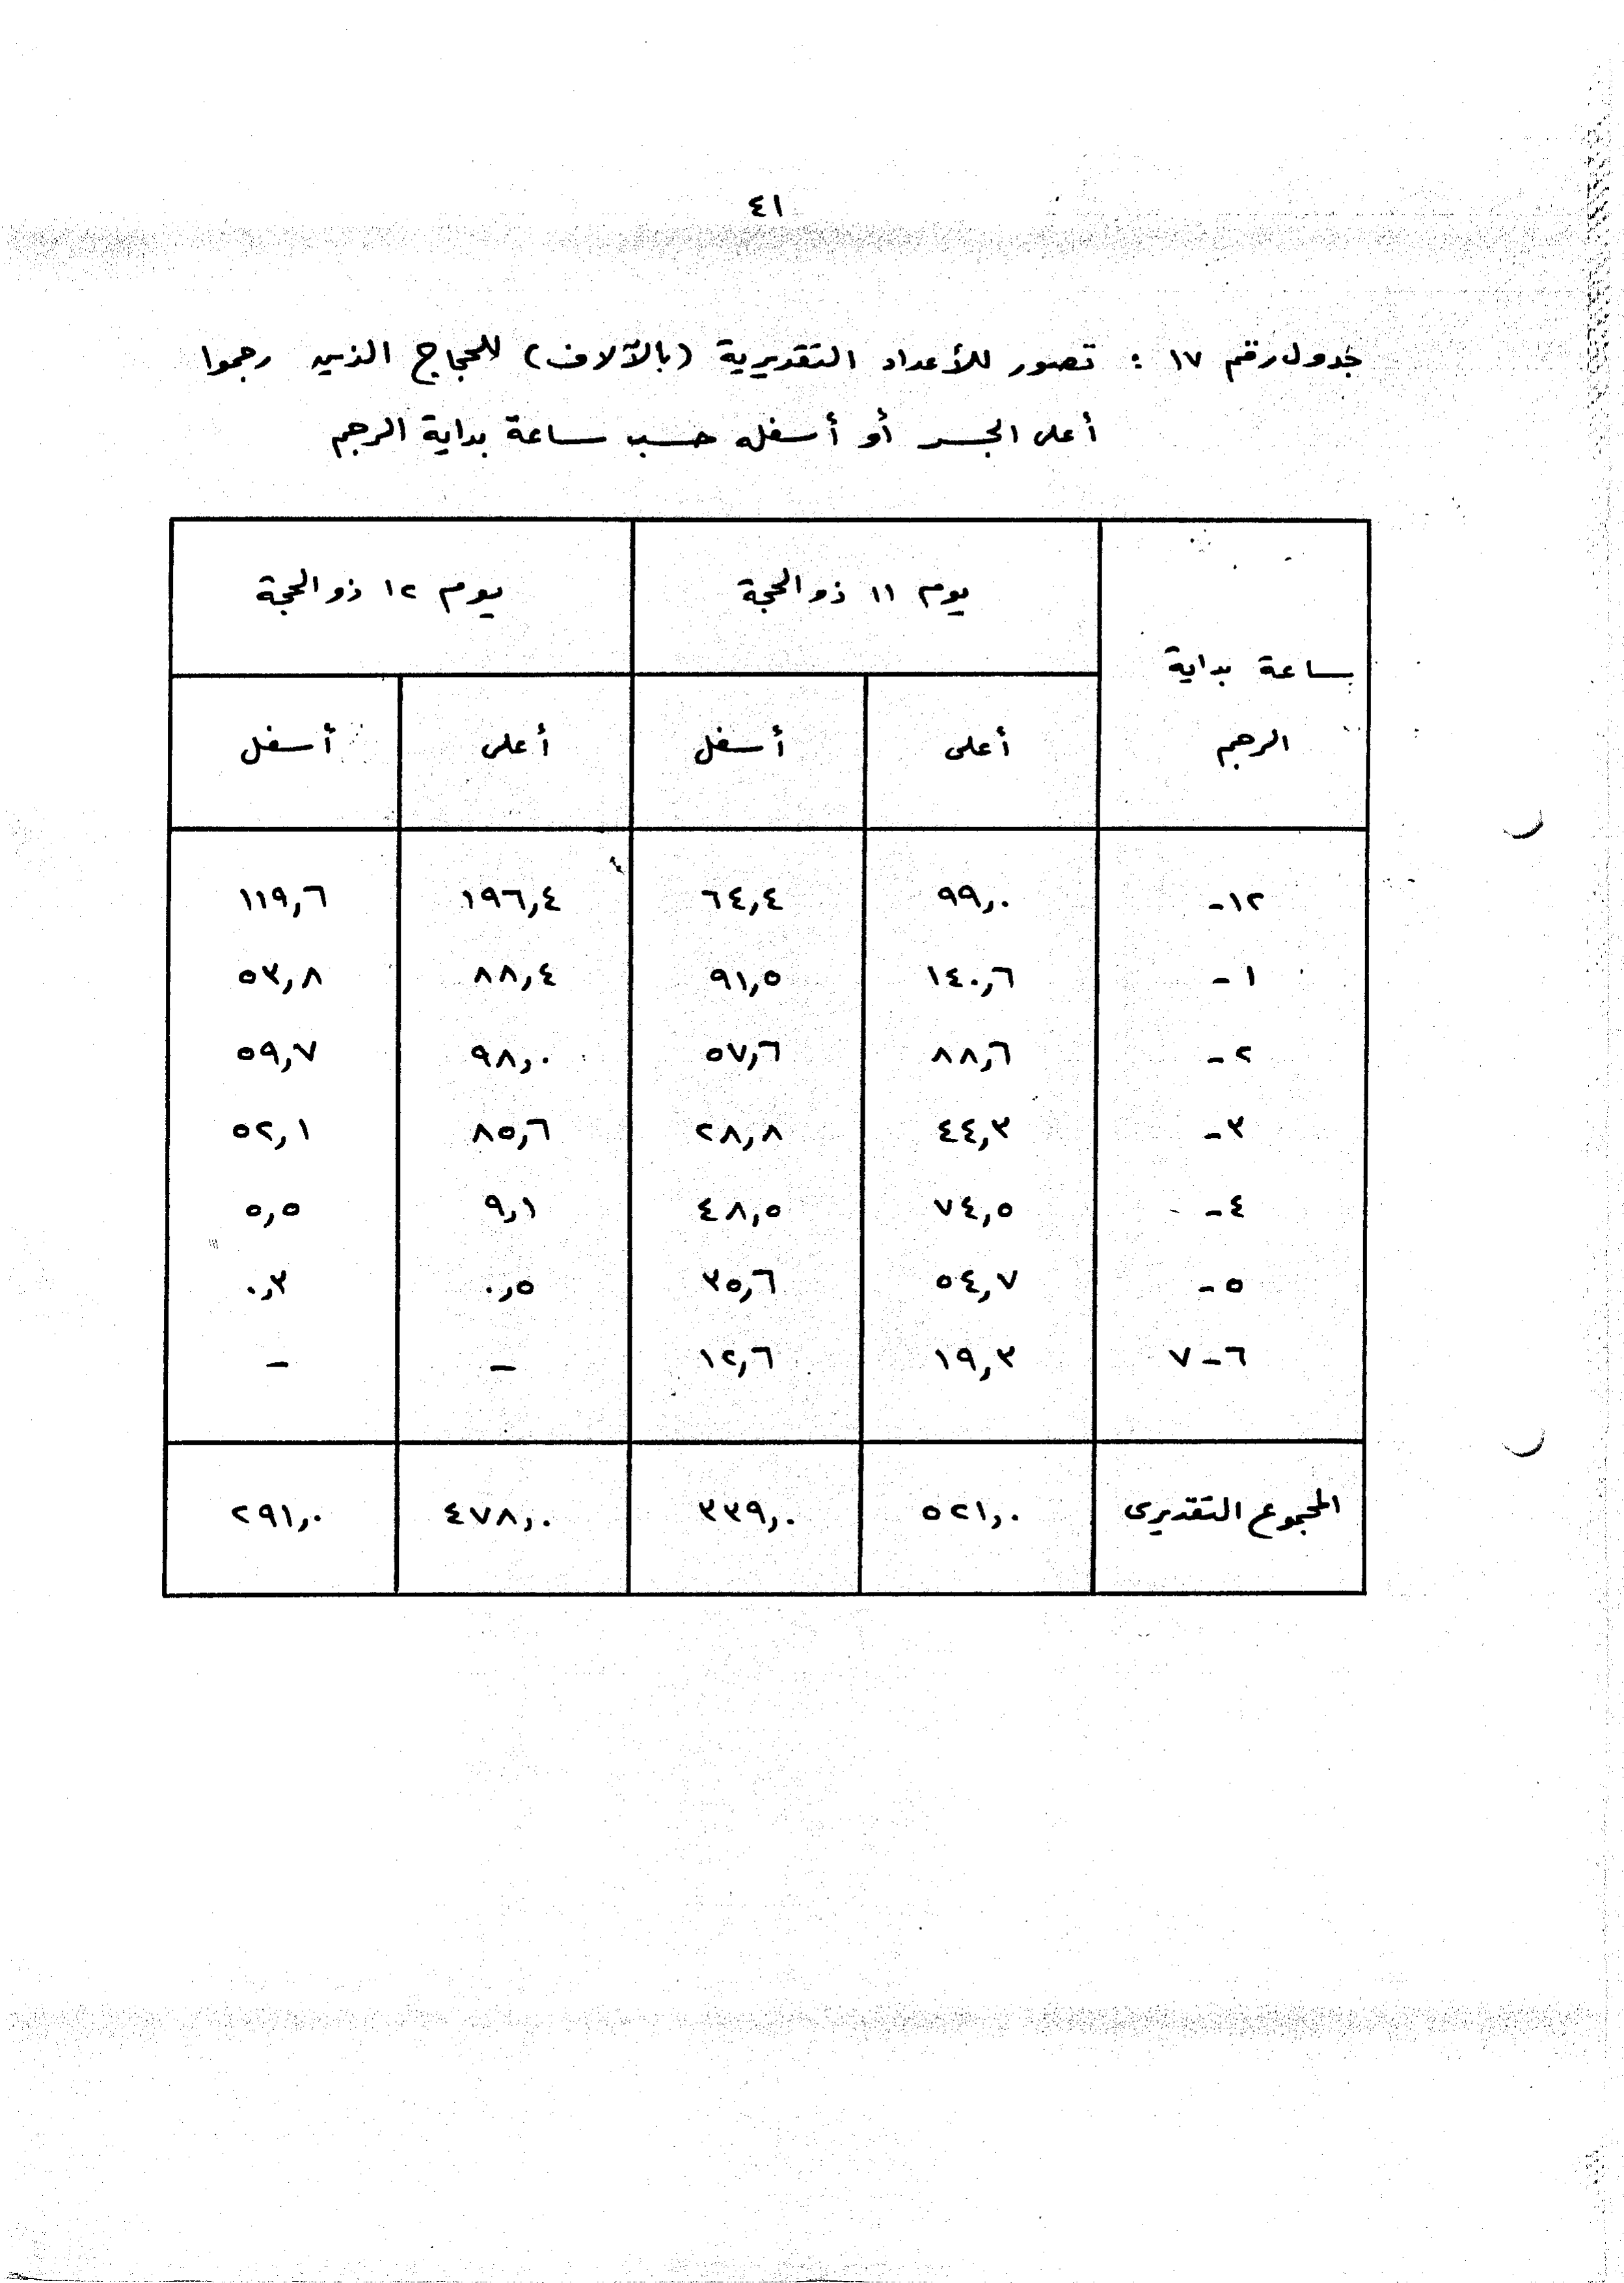 ٤١
جدول رقم ١٧ : تصور للأعداد التقديرية (بالآلاف) للحجاج الذين رجموا
أعلى الجسر أو أسفله حسب ساعة بداية الرجم
يوم ١١ ذو الحجة يوم ١٢ ذو الحجة
ساعة بداية
الرجم أعلى أسفل أعلى أسفل
١٢- ٩٩,٠ ٦٤,٤ ١٩٦,٤ ١١٩,٦
١- ١٤٠,٦ ٩١,٥ ٨٨,٤ ٥٣,٨
٢- ٨٨,٦ ٥٧,٦ ٩٨,٠ ٥٩,٧
٣- ٤٤,٣ ٢٨,٨ ٨٥,٦ ٥٢,١
٤- ٧٤,٥ ٤٨,٥ ٩,١ ٥,٥
٥- ٥٤,٧ ٣٥,٦ ٠,٥ ٠,٣
٦-٧ ١٩,٣ ١٢,٦ - -
المجموع التقديرى ٥٢١,٠ ٣٣٩,٠ ٤٧٨,٠ ٢٩١,٠